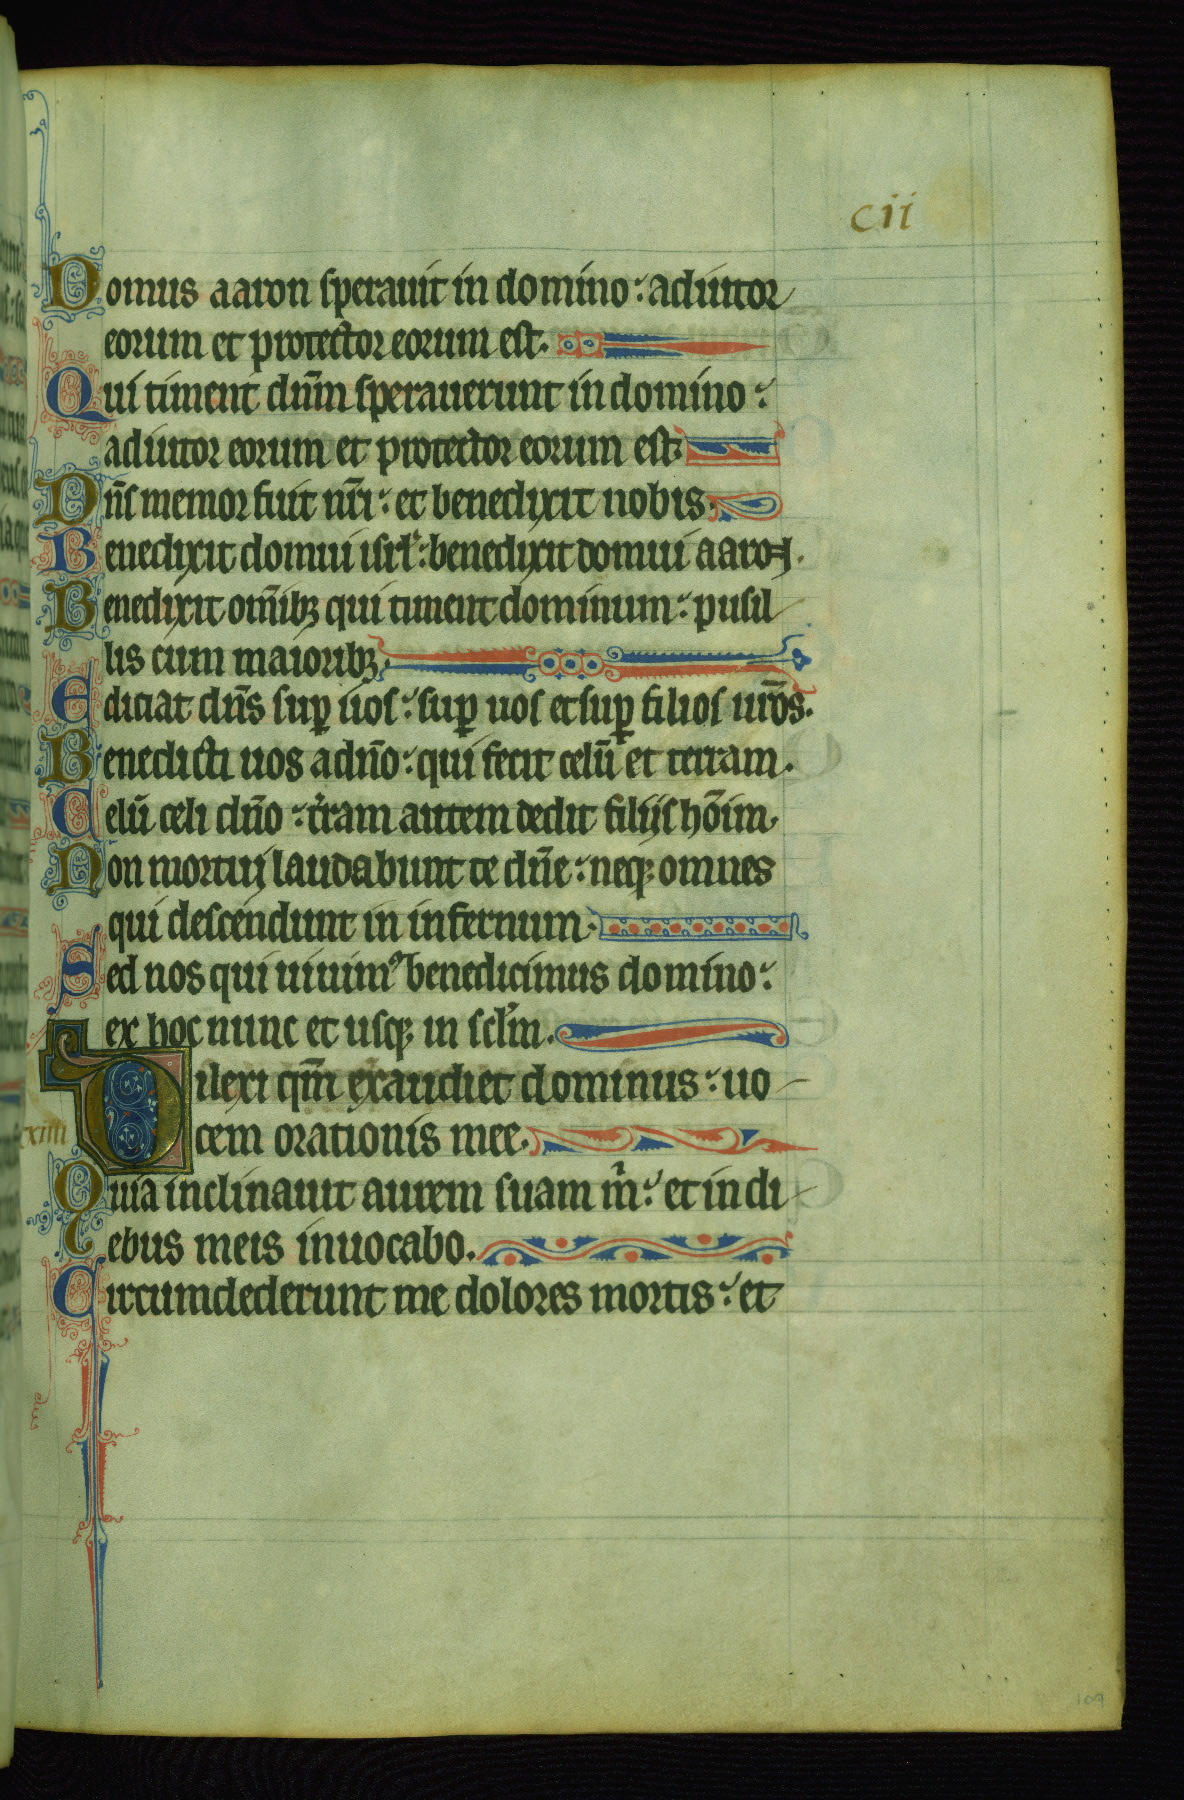 cii
Domus aaron sperauit in domino : adiutor
eorum et protector eorum est.
Qui timent dn̄m sperauerunt in domino :
adiutor eorum et protector eorum est.
Dn̄s memor fuit nr̄i : et benedixit nobis.
Benedixit domui isrl̄ : benedixit domui aaron.
Benedixit om̄ibꝫ qui timent dominum : pusil
lis cum maioribꝫ.
Ediciat dn̄s suꝑ uos : suꝑ uos et suꝑ filios ur̄os.
Benedicti uos a dn̄o : qui fecit celū et terram.
Celū celi dn̄o : t̄ram autem dedit filijs hōim.
Non mortui laudabunt te dn̄e : neqꝫ omnes
qui descendunt in infernum.
Sed nos qui uiuimꝰ benedicimus domino :
ex hoc nunc et usqꝫ in scl̄m.
Dilexi qm̄ exaudiet dominus : uo
xiiii
cem orationis mee.
Quia inclinauit aurem suam m̄ : et in di
ebus meis inuocabo.
Circumdederunt me dolores mortis : et
109